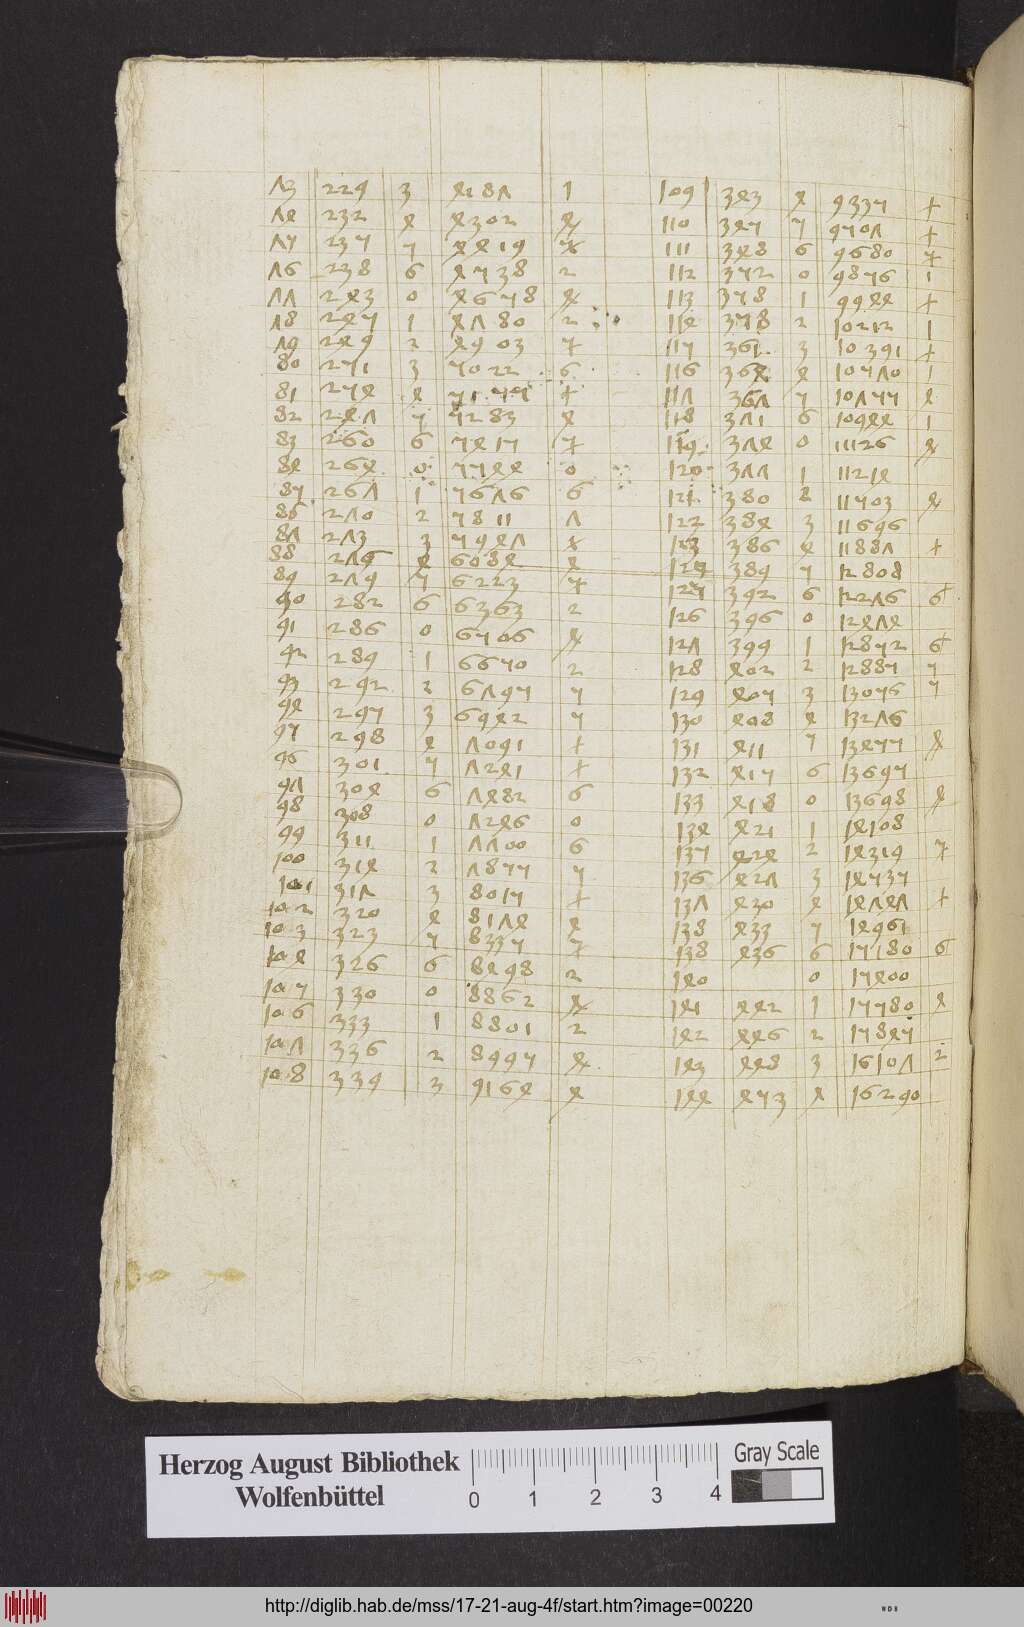 73 229 3 4187 1 109 343 4 9335 +
74 232 4 4302 4 110 345 5 9507 +
75 235 5 4419 5 111 348 6 9680 5
76 238 6 4538 2 112 352 0 9856 1
77 243 0 4658 4 113 358 1 9944 +
78 245 1 4780 2 114 358 2 10212 1
79 249 2 4903 5 115 361 3 10391 +
80 251 3 5022 6 116 364 4 10570 1
81 254 4 5155 + 117 367 5 10755 4
82 247 5 5283 4 118 371 6 10944 1
83 260 6 5415 5 119 374 0 11126 4
84 264 0 5544 0 120 377 1 11214
85 267 1 5676 6 121 380 2 11503 4
86 270 2 5811 7 122 384 3 11696
87 273 3 5947 + 123 386 4 11887 +
88 276 4 6084 4 124 389 5 12808
89 279 5 6223 5 125 392 6 12276 6
90 282 6 6363 2 126 396 0 12474
91 286 0 6506 4 127 399 1 12852 6
92 289 1 6650 2 128 402 2 12885 5
93 292 2 6795 5 129 405 3 13056 5
94 295 3 6942 5 130 408 4 13276
95 298 4 7091 + 131 411 5 13455 4
96 301 5 7241 + 132 415 6 13695
97 304 6 7482 6 133 418 0 13698 4
98 308 0 7246 0 134 421 1 14108
99 311 1 7700 6 135 424 2 14319 5
100 314 2 7855 5 136 427 3 14535
101 317 3 8015 + 137 430 4 14747 +
102 320 4 8174 4 138 433 5 14961
103 323 5 8335 5 138 436 6 15180 6
104 326 6 8498 2 140 0 15400
105 330 0 8862 4 141 442 1 15580 4
106 333 1 8801 2 142 446 2 15845
107 336 2 8995 4 143 448 3 16107 2
108 339 3 9164 4 144 453 4 16290
Herzog August Bibliothek
Wolfenbüttel
0 1 2 3 4
Gray Scale
http://diglib.hab.de/mss/17-21-aug-4f/start.htm?image=00220